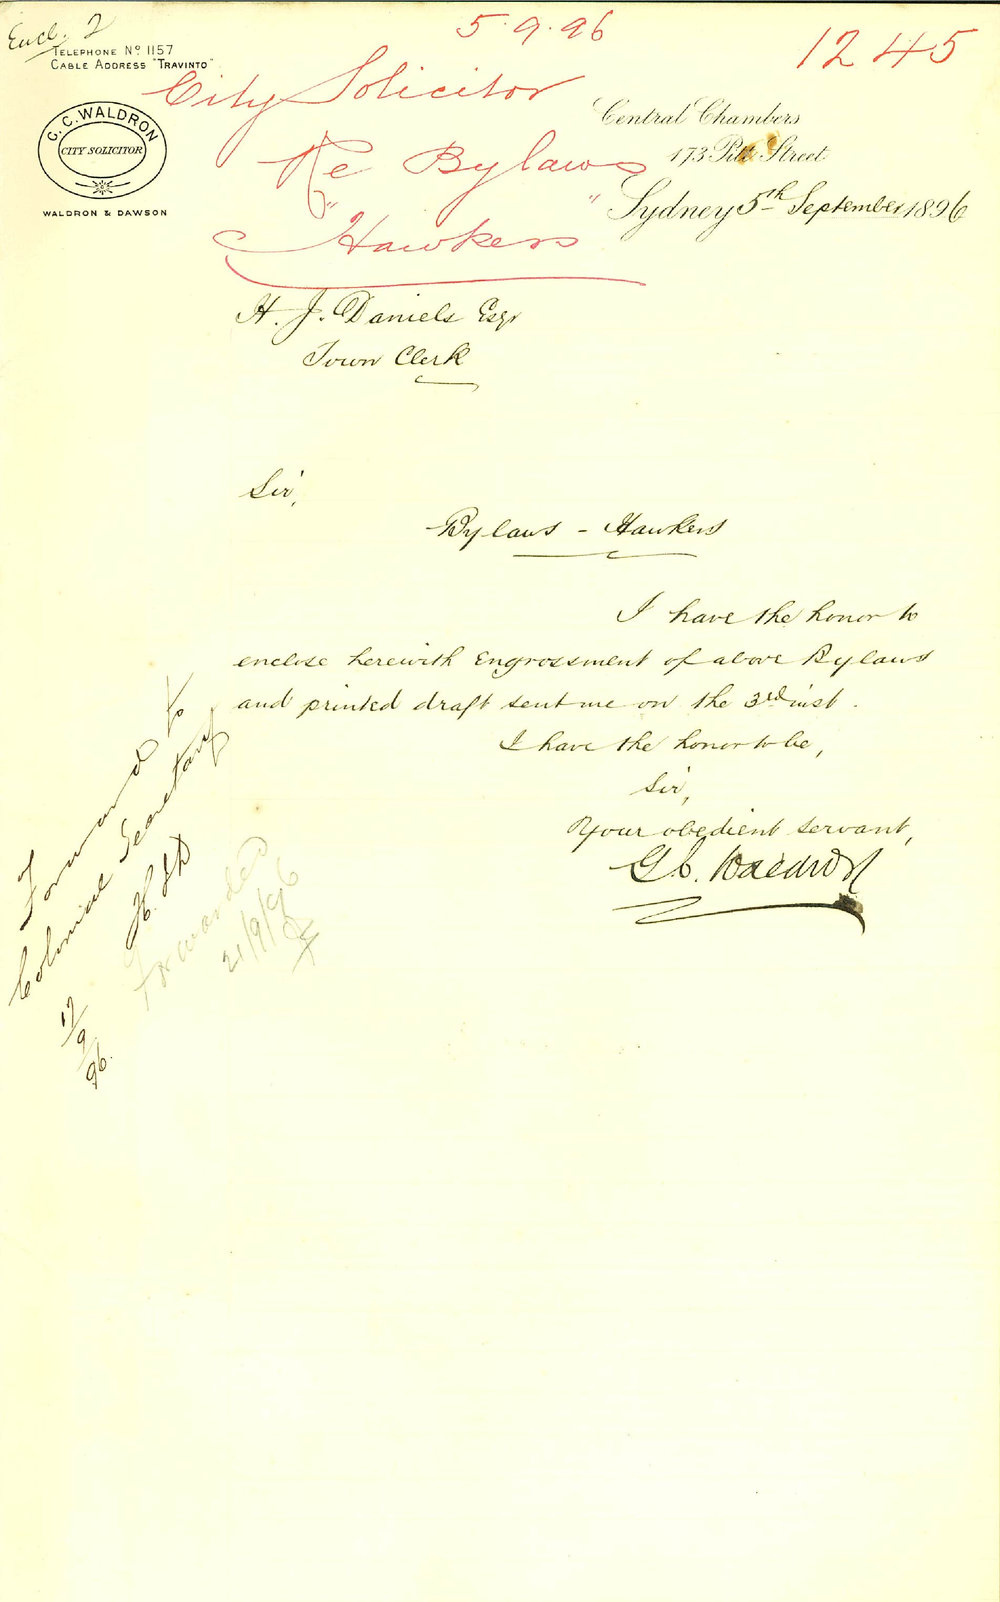 Encl. 2
5.9.96
1245
TELEPHONE Nº 1157
CABLE ADDRESS "TRAVINTO"
G. C. WALDRON
CITY SOLICITOR
WALDRON & DAWSON
City Solicitor
Re Bylaws
"Hawkers"
Central Chambers
173 Pitt Street
Sydney 5th September 1896
H. J. Daniels Esqr
Town Clerk
Sir,
Bylaws - Hawkers
I have the honor to
enclose herewith Engrossment of above Bylaws
and printed draft sent me on the 3rd inst.
I have the honor to be,
Sir,
Your obedient servant,
G C. Waldron
Forward to
Colonial Secretary
H.J.D
17/9/96.
Forwarded
21/9/96